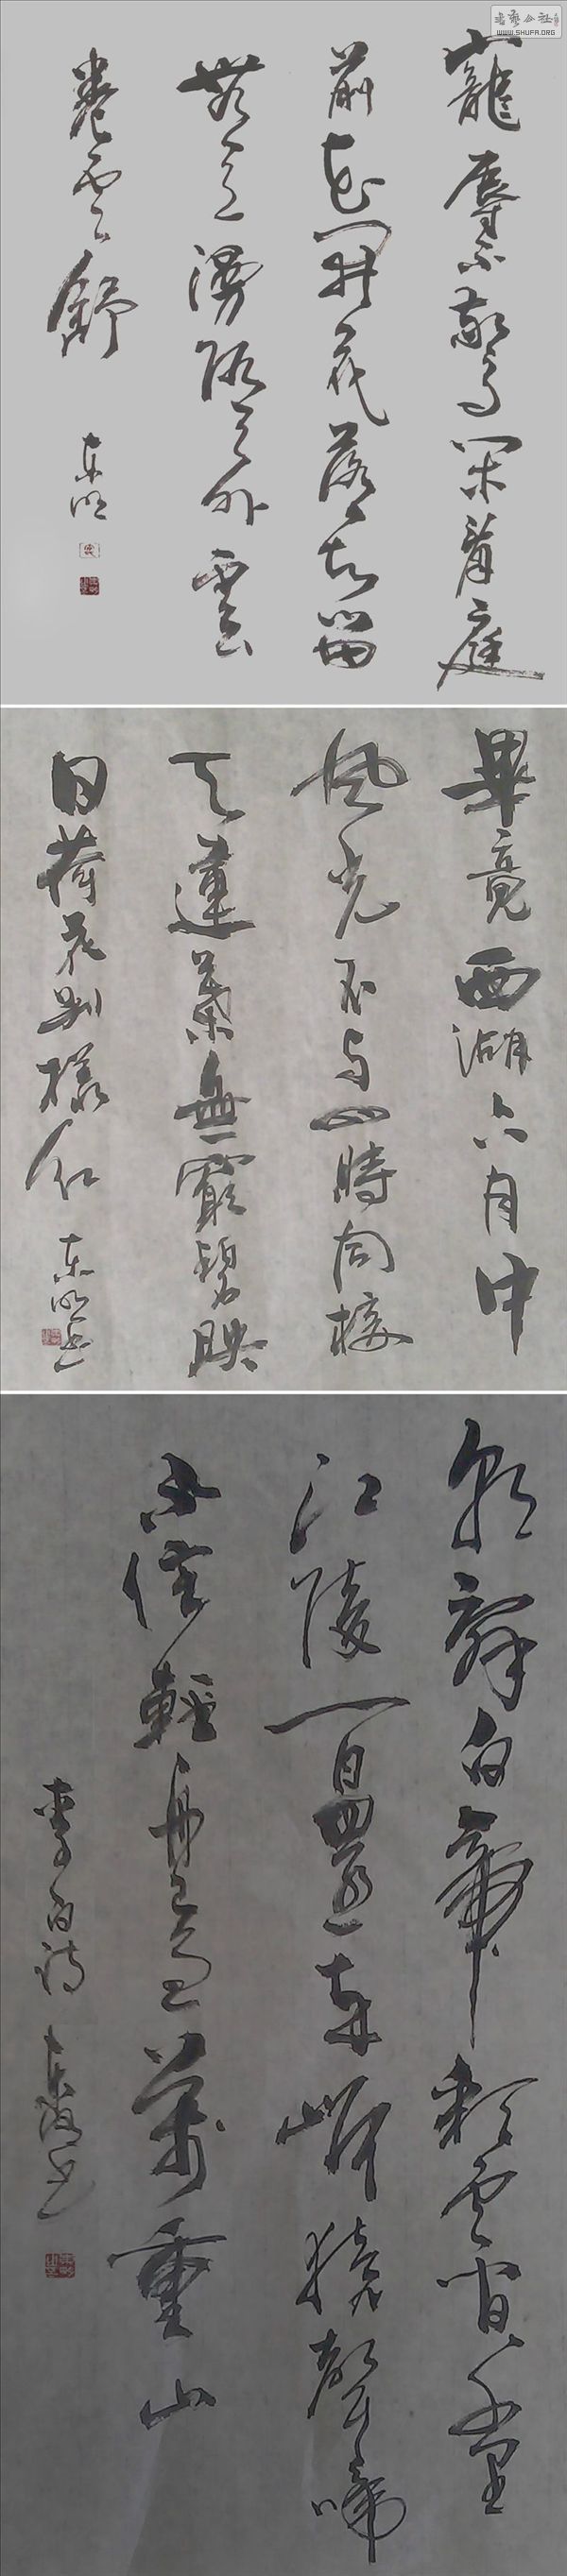 書藝公社
WWW.SHUFA.ORG
寵辱不驚闲看庭
前花開花落去留
無意漫随天外雲
卷雲舒
東明
畢竟西湖六月中
風光不与四時同接
天蓮葉無窮碧映
日荷花别樣红
東明书
朝辞白帝彩雲间千里
江陵一日還两岸猿聲啼
不住輕舟已過萬重山
李白诗
東明书